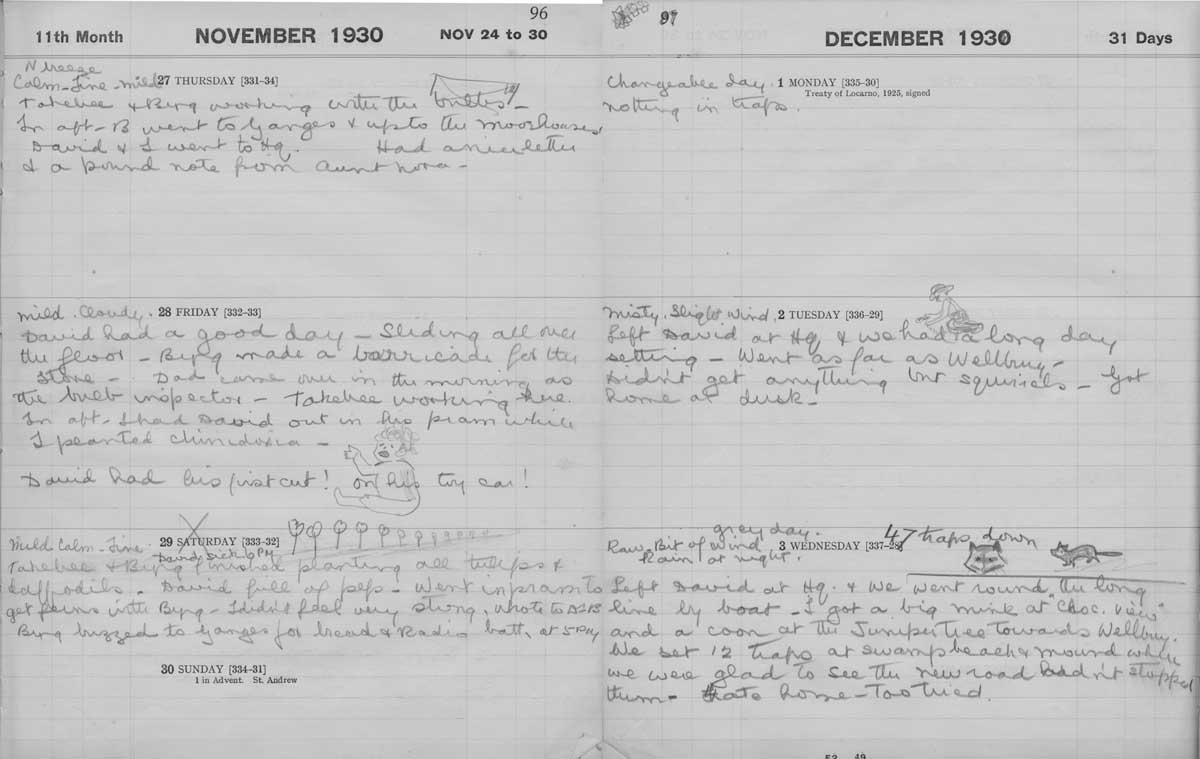 96
11th Month NOVEMBER 1930 NOV 24 to 30
N breeze
Calm - Fine - mild 27 THURSDAY [331-34]
Takebee & Byng working with the bulbs -
In aft - B went to Ganges & up to the Moorhouses
David & I went to Hq. Had a nice letter
& a pound note from Aunt Nora -
mild. Cloudy. 28 FRIDAY [332-33]
David had a good day - Sliding all over
the floor - Byng made a barricade for the
stove - Dad came over in the morning as
the bulb inspector - Takebee working here.
In aft. I had David out in his pram while
I planted chinidoxia -
David had his first cut! on his toy car!
Mild Calm - Fine 29 SATURDAY [333-32]
David sick 6 PM
Takebee & Byng finished planting all tulips &
daffodils - David full of peps - Went in pram to
get ferns with Byng - I didn't feel very strong, wrote to
Byng buzzed to Ganges for bread & Radio batt, at 5 PM
30 SUNDAY [334-31]
1 in Advent. St. Andrew
97
DECEMBER 1930 31 Days
Changeabee day. 1 MONDAY [335-30]
Treaty of Locarno, 1925, signed
nothing in traps.
Misty. Slight wind. 2 TUESDAY [336-29]
Left David at Hq & we had a long day
setting - Went as far as Wellbury -
Didn't get anything but squirels - Got
home at dusk -
grey day. 47 traps down
Raw, Bit of wind 3 WEDNESDAY [337-28]
Rain at night.
Left David at Hq. & we went round "the long
line by boat - I got a big mink at "Choc. View"
and a coon at the Juniper Tree towards Wellbury.
We set 12 traps at swamp beach & mound where
we were glad to see the new road hadn't stopped
them - Late home - Too tired.
52 49